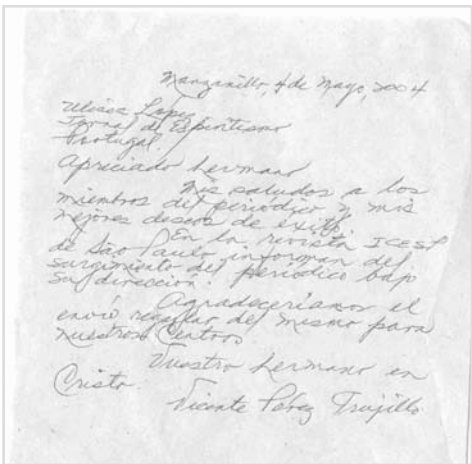 Manzanillo, 4 de Mayo, 2004
Ulises Lopez
Jornal de Espiritismo
Portugal.
Apreciado hermano
Mis saludos a los
miembros del periódico y mis
mejores deseos de éxito.
En la revista ICESP
de São Paulo informan del
surgimiento del periódico bajo
su dirección.
Agradeceríamos el
envío regular del mismo para
nuestros Centros.
Vuestro hermano en
Cristo.
Vicente Pérez Trujillo